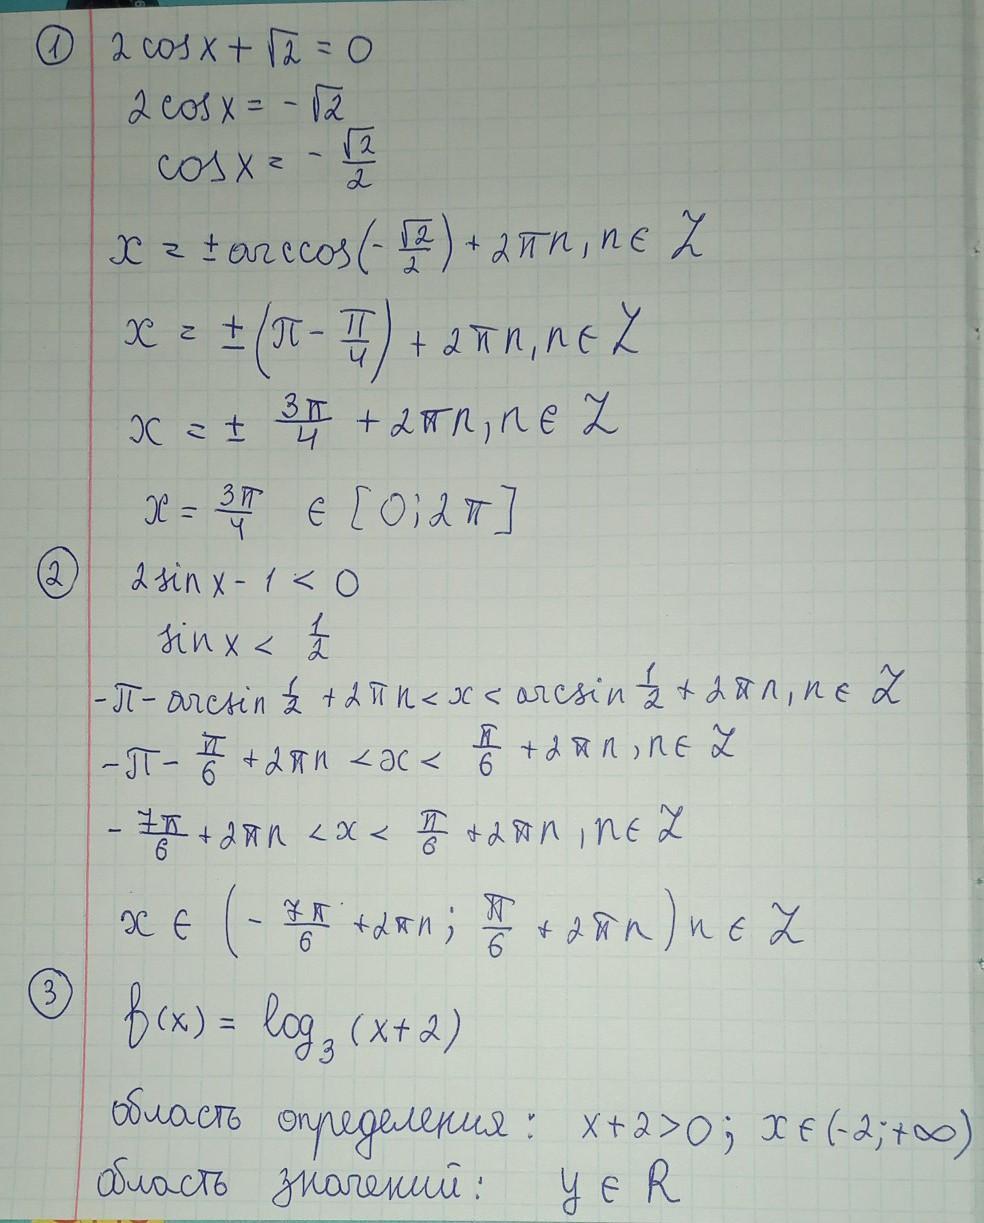 ① 2cosx + √2 = 0
2cosx = - √2
cosx = - √2/2
x = ± arccos(- √2/2) + 2πn, n ∈ Z
x = ± (π - π/4) + 2πn, n ∈ Z
x = ± 3π/4 + 2πn, n ∈ Z
x = 3π/4 ∈ [0; 2π]
② 2sinx - 1 < 0
sinx < 1/2
-π - arcsin 1/2 + 2πn < x < arcsin 1/2 + 2πn, n ∈ Z
-π - π/6 + 2πn < x < π/6 + 2πn, n ∈ Z
- 7π/6 + 2πn < x < π/6 + 2πn, n ∈ Z
x ∈ (- 7π/6 + 2πn; π/6 + 2πn) n ∈ Z
③ f(x) = log₃ (x+2)
область определения: x+2>0; x ∈ (-2; +∞)
область значений: y ∈ R